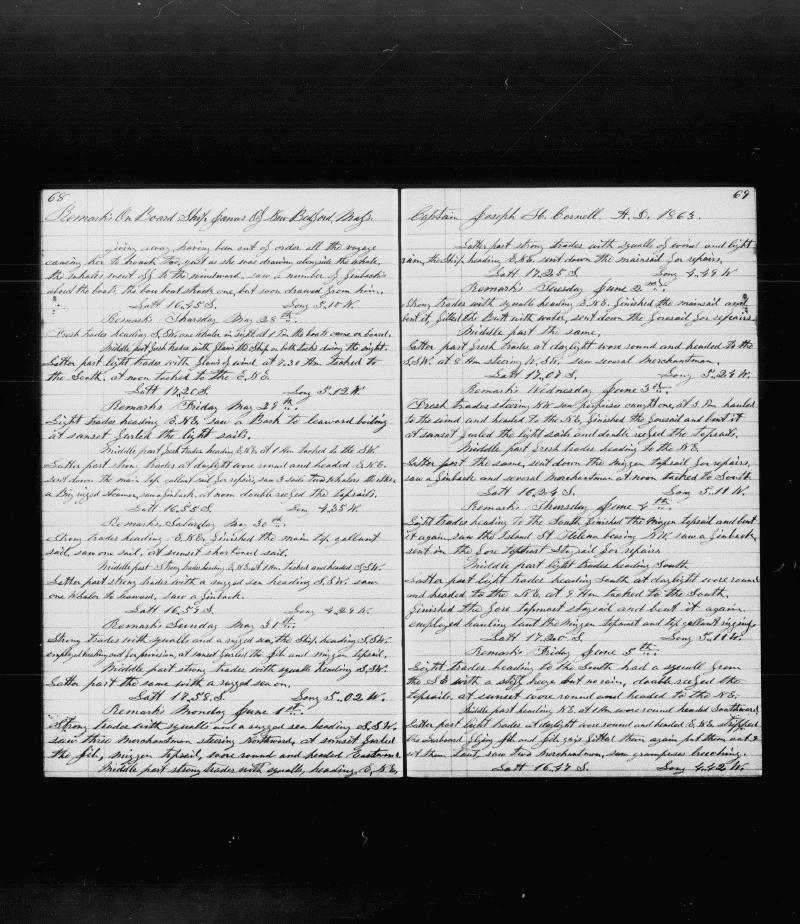 68
Remarks On Board Ship Janus Of New Bedford, Mass.
giving away, having been out of order all the voyage
causing her to broach too, just as she was drawing alongside the whale,
the whales went off to the windward, saw a number of finbacks
about the boat, the bow boat struck one, but soon drawed from him.
Latt 16.45 S. Long 5.10 W.
Remarks Thursday May 28th.
Fresh trades heading S.SW. one whaler in sight, at 1 Pm the boats came on board.
Middle part fresh trades with flaws the Ship on both tacks during the night.
Latter part light trades with flaws of wind, at 7.30 Am tacked to
the South, at noon tacked to the E.N.E.
Latt 17.20 S. Long 5.12 W.
Remarks Friday May 29th.
Light trades heading E.N.E. saw a Bark to leaward boiling
at sunset furled the light sails.
Middle part fresh trades heading E.N.E. at 1 Am tacked to the SW.
Latter part strong trades at daylight wore round and headed E.N.E.
sent down the main top gallant sail for repairs, saw 3 sails two whalers the other
a Brig rigged steamer, saw finback, at noon double reefed the topsails.
Latt 16.55 S. Long 4.35 W.
Remarks Saturday May 30th.
Strong trades heading E.N.E. finished the main top gallant
sail, saw one sail, at sunset shortened sail.
Middle part Strong trades heading E.N.E. at 1 Am tacked and headed S.SW.
Latter part strong trades with a rugged sea heading S.SW. saw
one Whaler to leaward, saw a finback.
Latt 16.59 S. Long 4.29 W.
Remarks Sunday May 31st.
Strong trades with squalls and a rugged sea, the Ship heading S.SW.
employed breaking out for provision, at sunset furled the jib and mizzen topsail.
Middle part strong trades with squalls heading S.SW.
Latter part the same with a rugged sea on.
Latt 17.58 S. Long 5.02 W.
Remarks Monday June 1st.
Strong trades with squalls and a rugged sea heading S.SW.
saw three Merchantmen steering Northward, at sunset furled
the jib, mizzen topsail, wore round and headed Eastward.
Middle part strong trades with squalls, heading E.N.E.
69
Captain Joseph H. Cornell. A.D. 1863.
Latter part strong trades with squalls of wind and light
rain, the Ship heading E.N.E. sent down the mainsail for repairs.
Latt 17.25 S. Long 4.49 W
Remarks Tuesday June 2nd.
Strong trades with squalls heading E.N.E. finished the mainsail and
bent it, filled the Butt with water, sent down the foresail for repairs
Middle part the same.
Latter part fresh trades at daylight wore round and headed to the
S.SW. at 8 Am steering W.SW. saw several Merchantmen.
Latt 17.07 S. Long 5.24 W
Remarks Wednesday June 3rd.
Fresh trades steering NW saw porpoises caught one, at 3 Pm hauled
to the wind and headed to the N.E. finished the foresail and bent it
at sunset furled the light sails and double reefed the topsails.
Middle part fresh trades heading to the N.E.
Latter part the same, sent down the mizzen topsail for repairs,
saw a finback and several merchantmen at noon tacked to South
Latt 16.24 S. Long 5.11 W
Remarks Thursday June 4th.
Light trades heading to the South, finished the Mizzen topsail and bent
it again, saw the Island St Helena bearing NW. saw a finback,
sent in the fore topmast Staysail for repairs
Middle part light trades heading South
Latter part light trades heading South at daylight wore round
and headed to the N.E. at 9 Am tacked to the South.
finished the fore topmast staysail and bent it again.
employed hauling taut the mizzen topmast and top gallant rigging.
Latt 17.20 S. Long 5.11 W.
Remarks Friday June 5th.
Light trades heading to the South had a squall from
the SE with a stiff breeze but no rain, double reefed the
topsails, at sunset wore round and headed to the N.E.
Middle part heading N.E. at 1 Am wore round headed Southward
Latter part light trades at daylight wore round and headed E.N.E. stripped
the larboard flying jib and jib guys fitted them again, put them out &
set them taut, saw two Merchantmen, saw grampuses breeching.
Latt 16.47 S. Long 4.42 W.